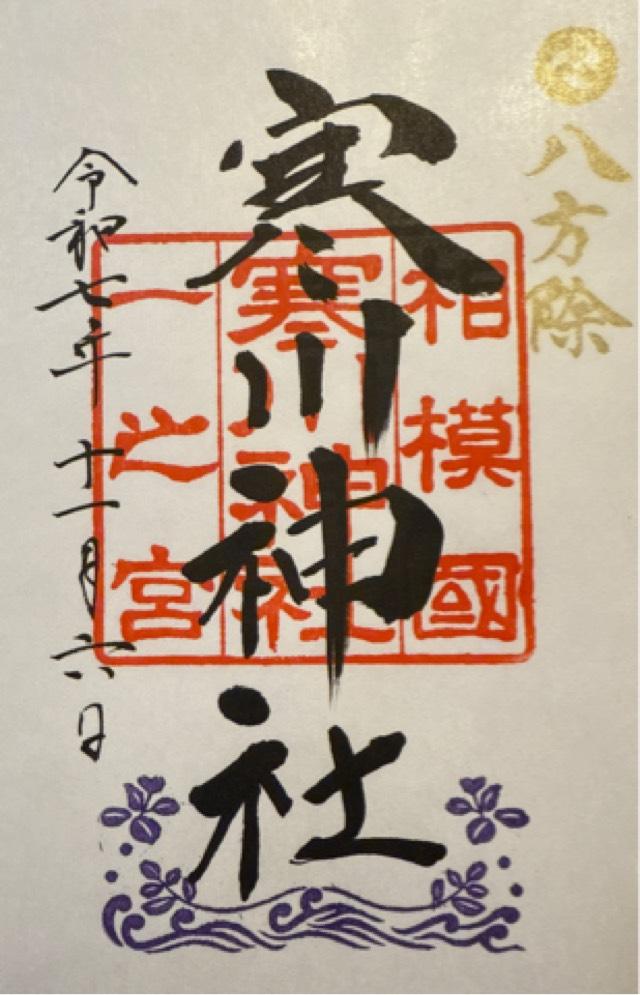 八方除
相模國
寒川神社
一之宮
寒川神社
令和七年 十一月六日